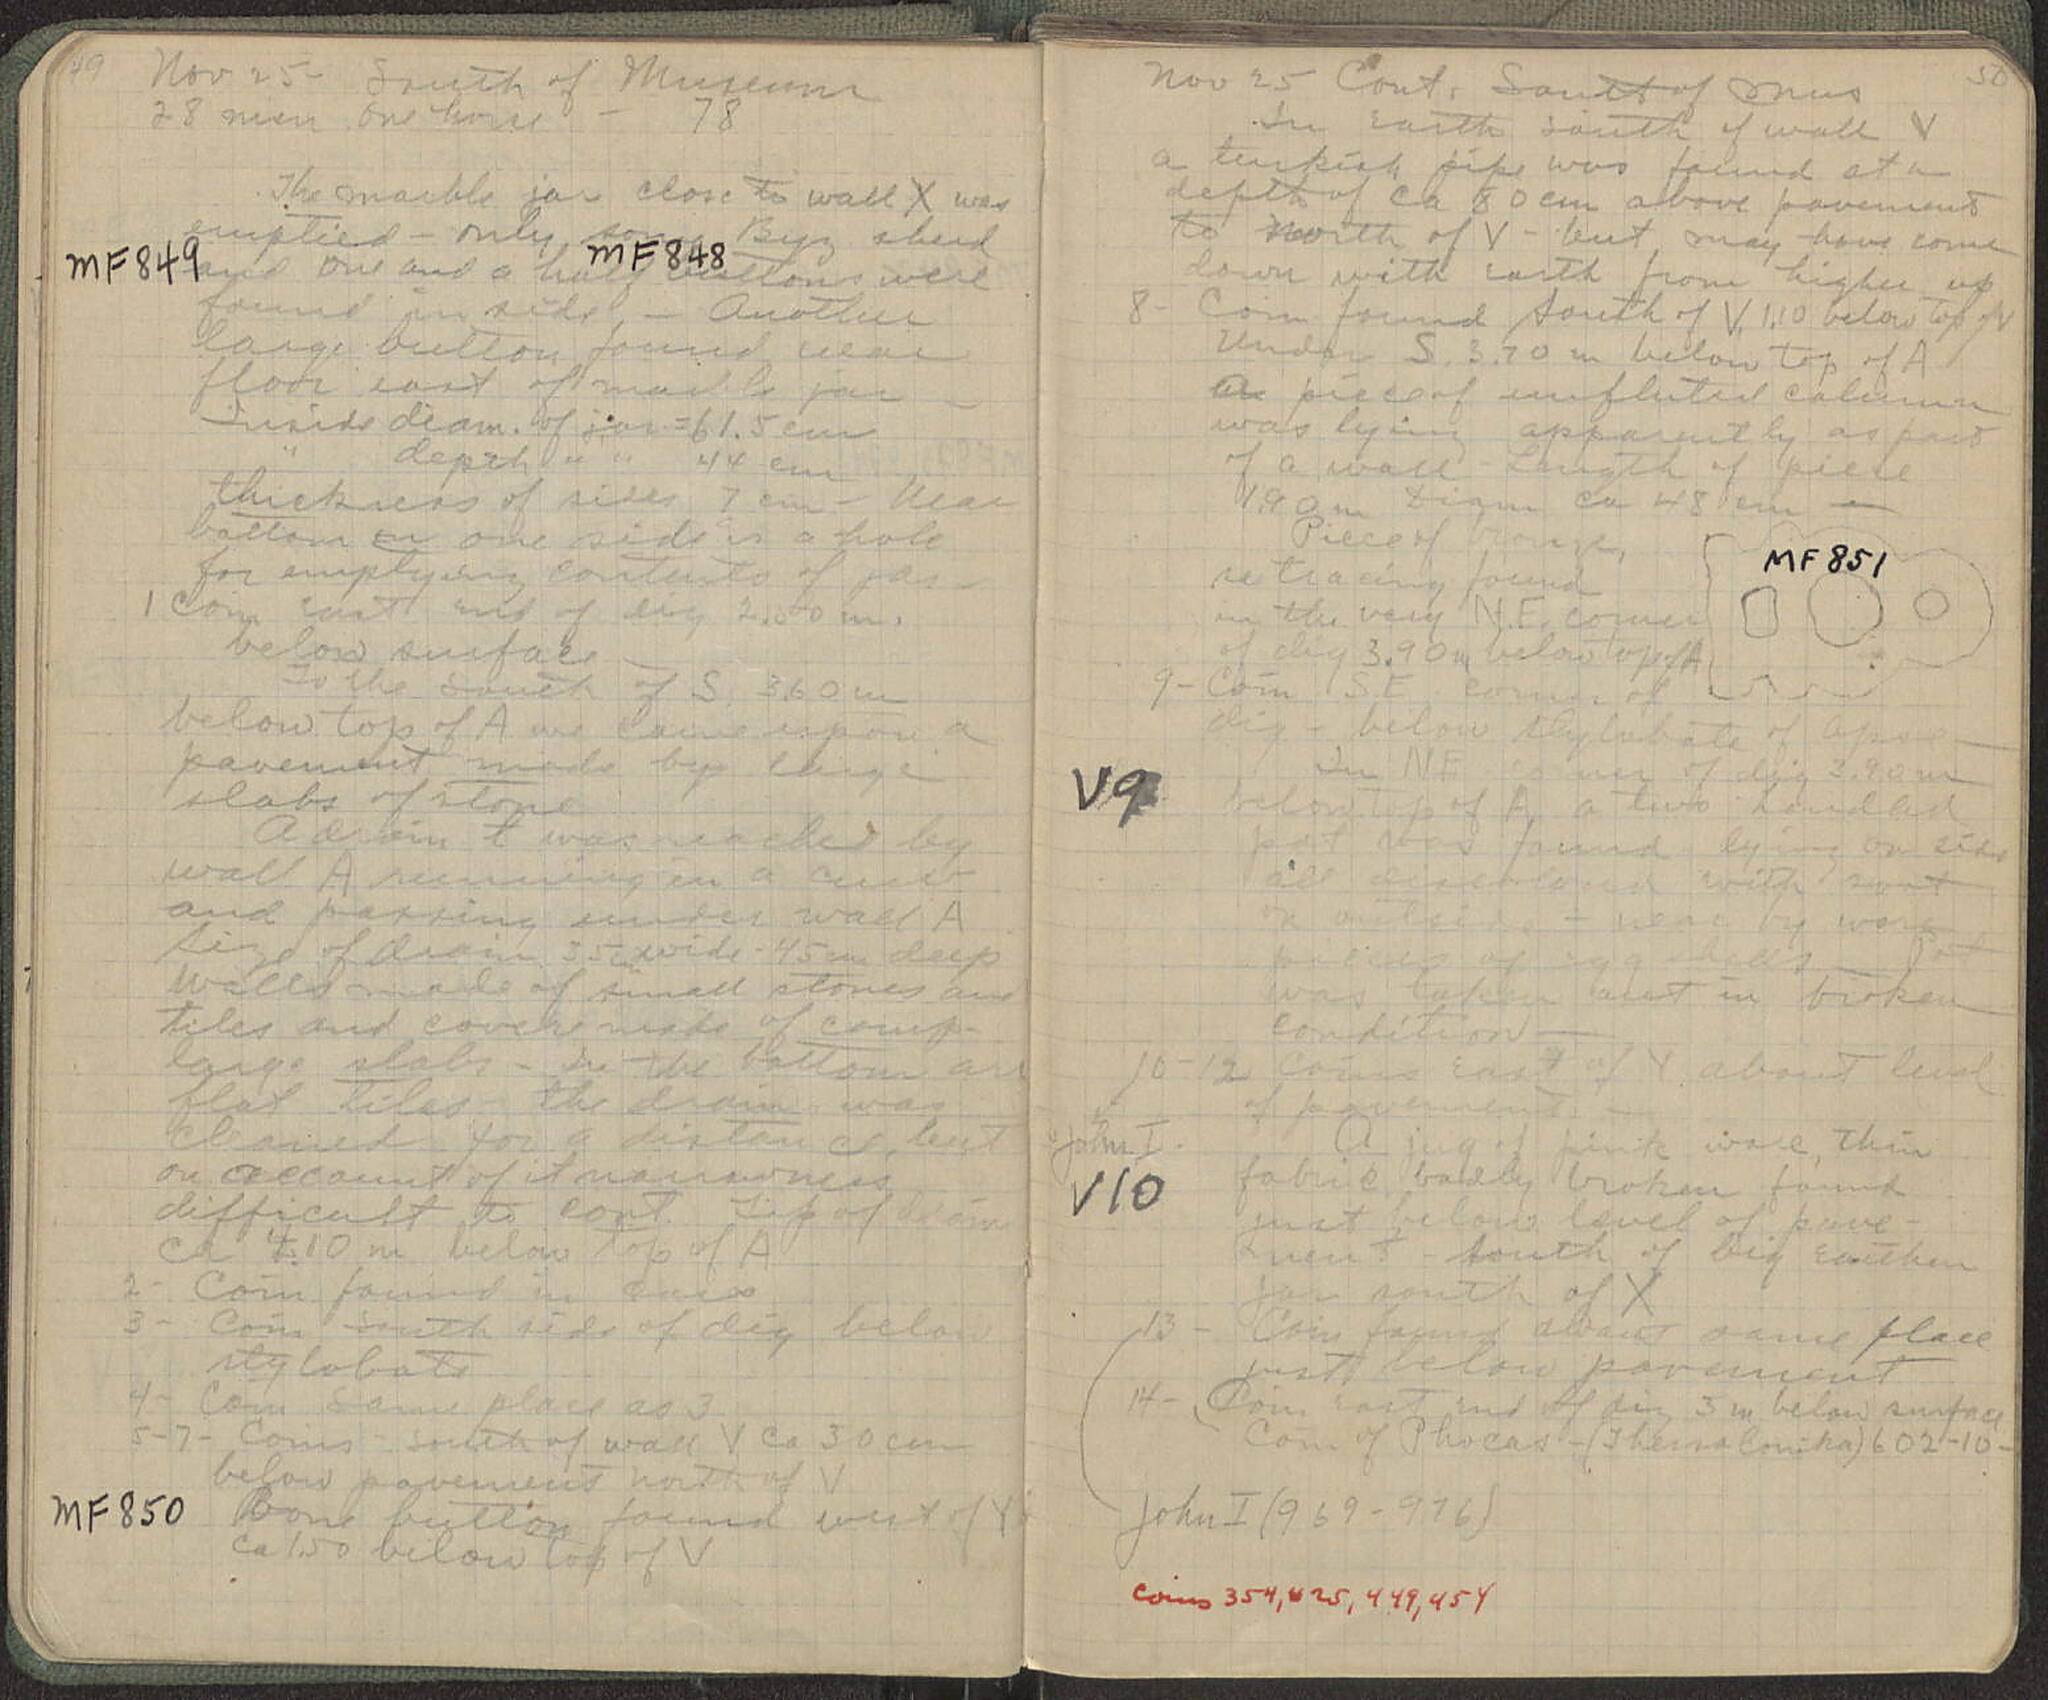 49
Nov 25 - South of Museum
28 men one horse - 78
The marble jar close to wall X was
emptied - only some Byz sherd
MF849 MF848
and one and a half buttons were
found in side - Another
large button found near
floor east of marble jar -
Inside diam. of jar = 61.5 cm
" depth " " 44 cm
thickness of sides 7 cm - Near
bottom on one side is a hole
for emptying contents of jar -
1 Coin east end of dig 2.00 m.
below surface
To the south of S. 3.60 m
below top of A we came upon a
pavement made by large
slabs of stone
A drain t was reached by
wall A running in a curve
and passing under wall A
Size of drain 35 cm wide - 45 cm deep
Walls made of small stones and
tiles and covers made of comp-
large slabs - In the bottom are
flat tiles - the drain was
cleaned for a distance, but
on account of it narrowness
difficult to cont. Top of drain
ca 4.10 m below top of A
2 - Coin found in
3 - Coin south side of dig below
stylobate
4 - Coin same place as 3
5-7 - Coins - south of wall V ca 30 cm
below pavement north of V
MF850 Bone button found west of Y
ca 1.50 below top of V
50
Nov 25 Cont. South of Mus
In earth south of wall V
a turkish pipe was found at a
depth of ca 80 cm above pavement
to north of V - but may have come
down with earth from higher up
8 - Coin found South of V, 1.10 below top of V
Under S. 3.70 m below top of A
a piece of unfluted column
was lying apparently as part
of a wall - Length of piece
1.90 m Diam ca 48 cm -
Piece of bronze,
MF851
se tracing found
in the very N.E. corner
of dig 3.90 m below top of A
9 - Coin S.E. corner of
dig - below stylobate of apse -
In N.E. corner of dig 3.90 m
V9 below top of A, a two handled
pot was found lying on side
all discolored with soot
on outside - near by were
pieces of egg shells - Pot
was taken out in broken
condition -
10-12 Coins east of Y about level
of pavement -
John I. A jug of pink ware, thin
V10 fabric badly broken found
just below level of pave-
ment - South of big earthen
jar south of X
13 - Coin found about same place
just below pavement
14 - Coin east end of dig 3 m below surface
Coin of Phocas - (Thessalonika) 602-10 -
John I (969-976)
Coins 354, 425, 449, 454